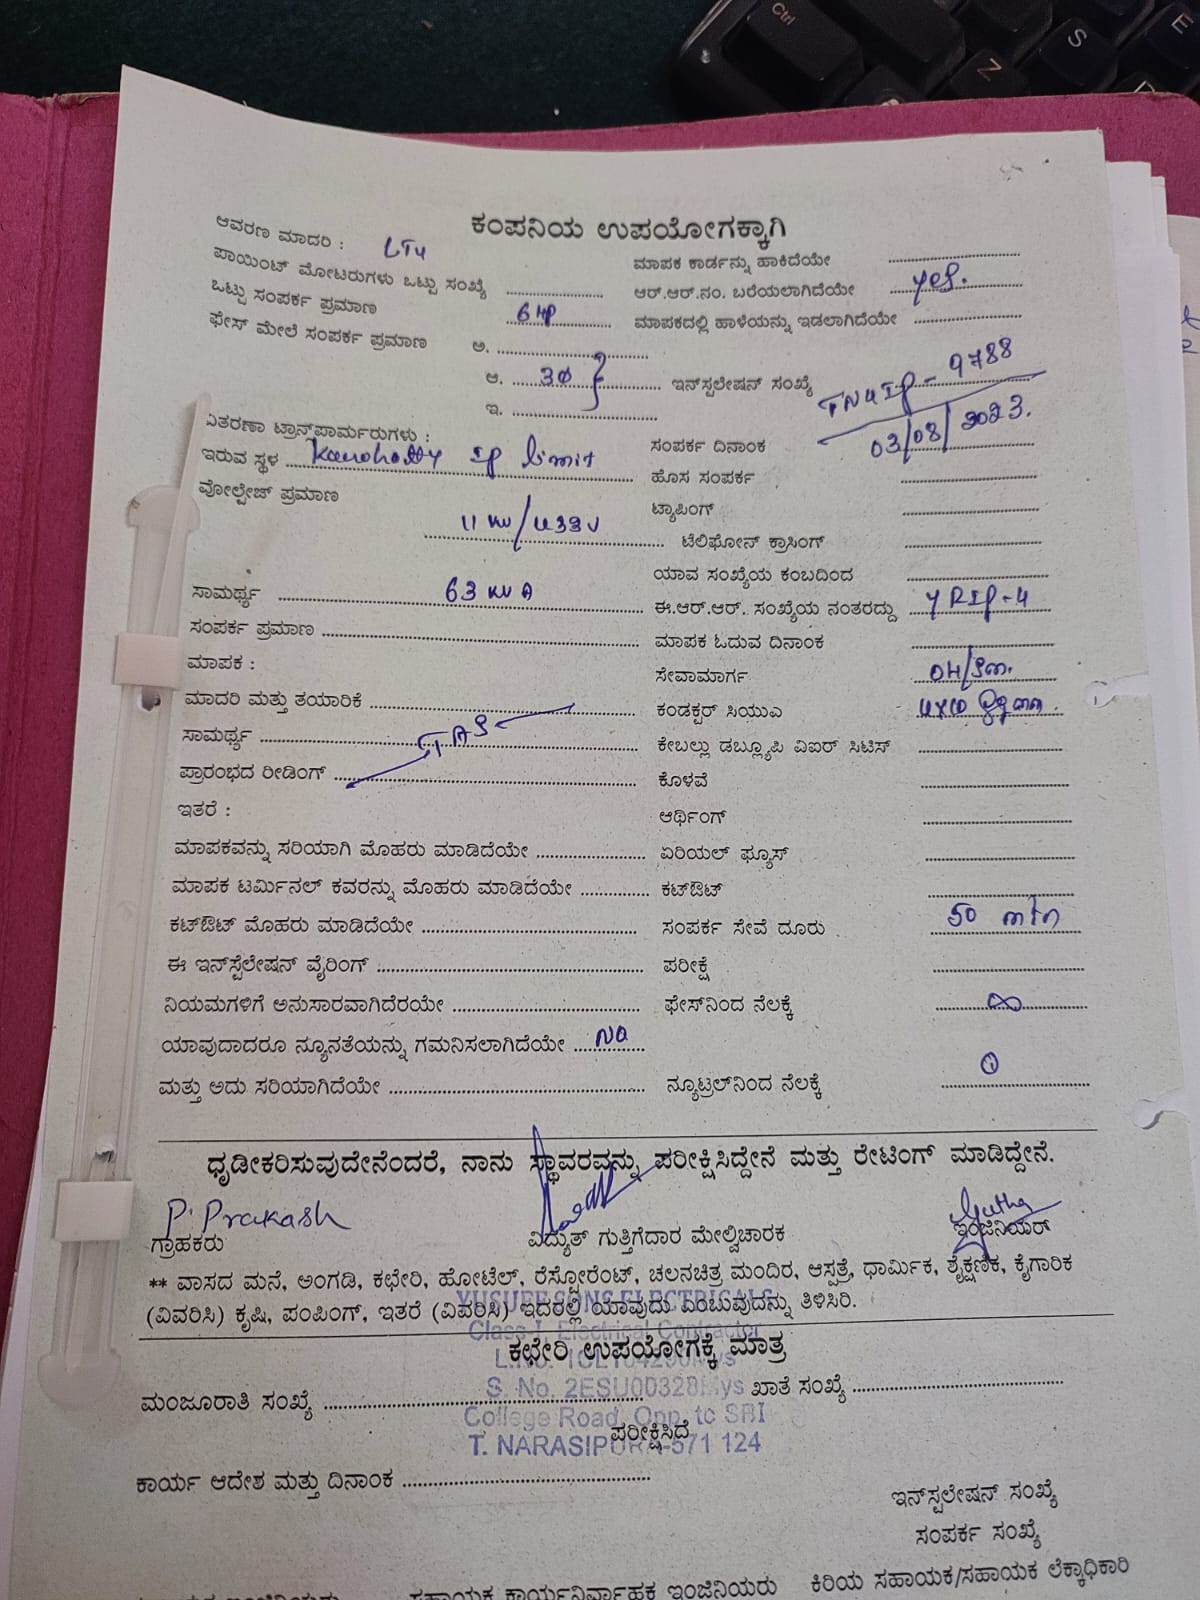 Ctrl
S
E
Z
ಕಂಪನಿಯ ಉಪಯೋಗಕ್ಕಾಗಿ
ಆವರಣ ಮಾದರಿ : LT4
ಪಾಯಿಂಟ್ ಮೋಟರುಗಳು ಒಟ್ಟು ಸಂಖ್ಯೆ
ಒಟ್ಟು ಸಂಪರ್ಕ ಪ್ರಮಾಣ 6 HP
ಫೇಸ್ ಮೇಲೆ ಸಂಪರ್ಕ ಪ್ರಮಾಣ ಅ.
ಆ. 3Φ
ಇ.
ವಿತರಣಾ ಟ್ರಾನ್ಸ್‌ಪಾರ್ಮರುಗಳು :
ಇರುವ ಸ್ಥಳ IP limit
ವೋಲ್ಟೇಜ್ ಪ್ರಮಾಣ 11 KV/433V
ಸಾಮರ್ಥ್ಯ 63 KVA
ಸಂಪರ್ಕ ಪ್ರಮಾಣ
ಮಾಪಕ :
ಮಾದರಿ ಮತ್ತು ತಯಾರಿಕೆ
ಸಾಮರ್ಥ್ಯ
ಪ್ರಾರಂಭದ ರೀಡಿಂಗ್
ಇತರೆ :
ಮಾಪಕವನ್ನು ಸರಿಯಾಗಿ ಮೊಹರು ಮಾಡಿದೆಯೇ
ಮಾಪಕ ಟರ್ಮಿನಲ್ ಕವರನ್ನು ಮೊಹರು ಮಾಡಿದೆಯೇ
ಕಟ್‌ಔಟ್ ಮೊಹರು ಮಾಡಿದೆಯೇ
ಈ ಇನ್‌ಸ್ಟೆಲೇಷನ್ ವೈರಿಂಗ್
ನಿಯಮಗಳಿಗೆ ಅನುಸಾರವಾಗಿದೆರಯೇ
ಯಾವುದಾದರೂ ನ್ಯೂನತೆಯನ್ನು ಗಮನಿಸಲಾಗಿದೆಯೇ NO
ಮತ್ತು ಅದು ಸರಿಯಾಗಿದೆಯೇ
ಮಾಪಕ ಕಾರ್ಡನ್ನು ಹಾಕಿದೆಯೇ
ಆರ್.ಆರ್.ನಂ. ಬರೆಯಲಾಗಿದೆಯೇ yes.
ಮಾಪಕದಲ್ಲಿ ಹಾಳೆಯನ್ನು ಇಡಲಾಗಿದೆಯೇ
ಇನ್‌ಸ್ಟಲೇಷನ್ ಸಂಖ್ಯೆ TN4IP - 9788
ಸಂಪರ್ಕ ದಿನಾಂಕ 03/08/2023.
ಹೊಸ ಸಂಪರ್ಕ
ಟ್ಯಾಪಿಂಗ್
ಟೆಲಿಫೋನ್ ಕ್ರಾಸಿಂಗ್
ಯಾವ ಸಂಖ್ಯೆಯ ಕಂಬದಿಂದ
ಈ.ಆರ್.ಆರ್. ಸಂಖ್ಯೆಯ ನಂತರದ್ದು YRIP-4
ಮಾಪಕ ಓದುವ ದಿನಾಂಕ
ಸೇವಾಮಾರ್ಗ
ಕಂಡಕ್ಟರ್ ಸಿಯುಎ
ಕೇಬಲ್ಲು ಡಬ್ಲ್ಯೂಪಿ ವಿಐರ್ ಸಿಟಿಸ್
ಕೊಳವೆ
ಆರ್ಥಿಂಗ್
ಏರಿಯಲ್ ಫ್ಯೂಸ್
ಕಟ್‌ಔಟ್
ಸಂಪರ್ಕ ಸೇವೆ ದೂರು 50
ಪರೀಕ್ಷೆ
ಫೇಸ್‌ನಿಂದ ನೆಲಕ್ಕೆ ∞
ನ್ಯೂಟ್ರಲ್‌ನಿಂದ ನೆಲಕ್ಕೆ
ಧೃಡೀಕರಿಸುವುದೇನೆಂದರೆ, ನಾನು ಸ್ಥಾವರವನ್ನು ಪರೀಕ್ಷಿಸಿದ್ದೇನೆ ಮತ್ತು ರೇಟಿಂಗ್ ಮಾಡಿದ್ದೇನೆ.
P. Prakash
ಗ್ರಾಹಕರು ವಿದ್ಯುತ್ ಗುತ್ತಿಗೆದಾರ ಮೇಲ್ವಿಚಾರಕ ಇಂಜಿನಿಯರ್
** ವಾಸದ ಮನೆ, ಅಂಗಡಿ, ಕಛೇರಿ, ಹೋಟೆಲ್, ರೆಸ್ಟೋರೆಂಟ್, ಚಲನಚಿತ್ರ ಮಂದಿರ, ಆಸ್ಪತ್ರೆ, ಧಾರ್ಮಿಕ, ಶೈಕ್ಷಣಿಕ, ಕೈಗಾರಿಕ
(ವಿವರಿಸಿ) ಕೃಷಿ, ಪಂಪಿಂಗ್, ಇತರೆ (ವಿವರಿಸಿ) ಇದರಲ್ಲಿ ಯಾವುದು ಎಂಬುವುದನ್ನು ತಿಳಿಸಿರಿ.
YUSUFF SONS ELECTRICALS
Class-I, Electrical Contractor
ಕಛೇರಿ ಉಪಯೋಗಕ್ಕೆ ಮಾತ್ರ
S. No. 2ESU00328Mys
ಮಂಜೂರಾತಿ ಸಂಖ್ಯೆ ಖಾತೆ ಸಂಖ್ಯೆ
College Road, Opp. to SBI
ಪರೀಕ್ಷಿಸಿದೆ
T. NARASIPURA-571 124
ಕಾರ್ಯ ಆದೇಶ ಮತ್ತು ದಿನಾಂಕ
ಇನ್‌ಸ್ಟಲೇಷನ್ ಸಂಖ್ಯೆ
ಸಂಪರ್ಕ ಸಂಖ್ಯೆ
ಸಹಾಯಕ ಕಾರ್ಯನಿರ್ವಾಹಕ ಇಂಜಿನಿಯರು ಕಿರಿಯ ಸಹಾಯಕ/ಸಹಾಯಕ ಲೆಕ್ಕಾಧಿಕಾರಿ